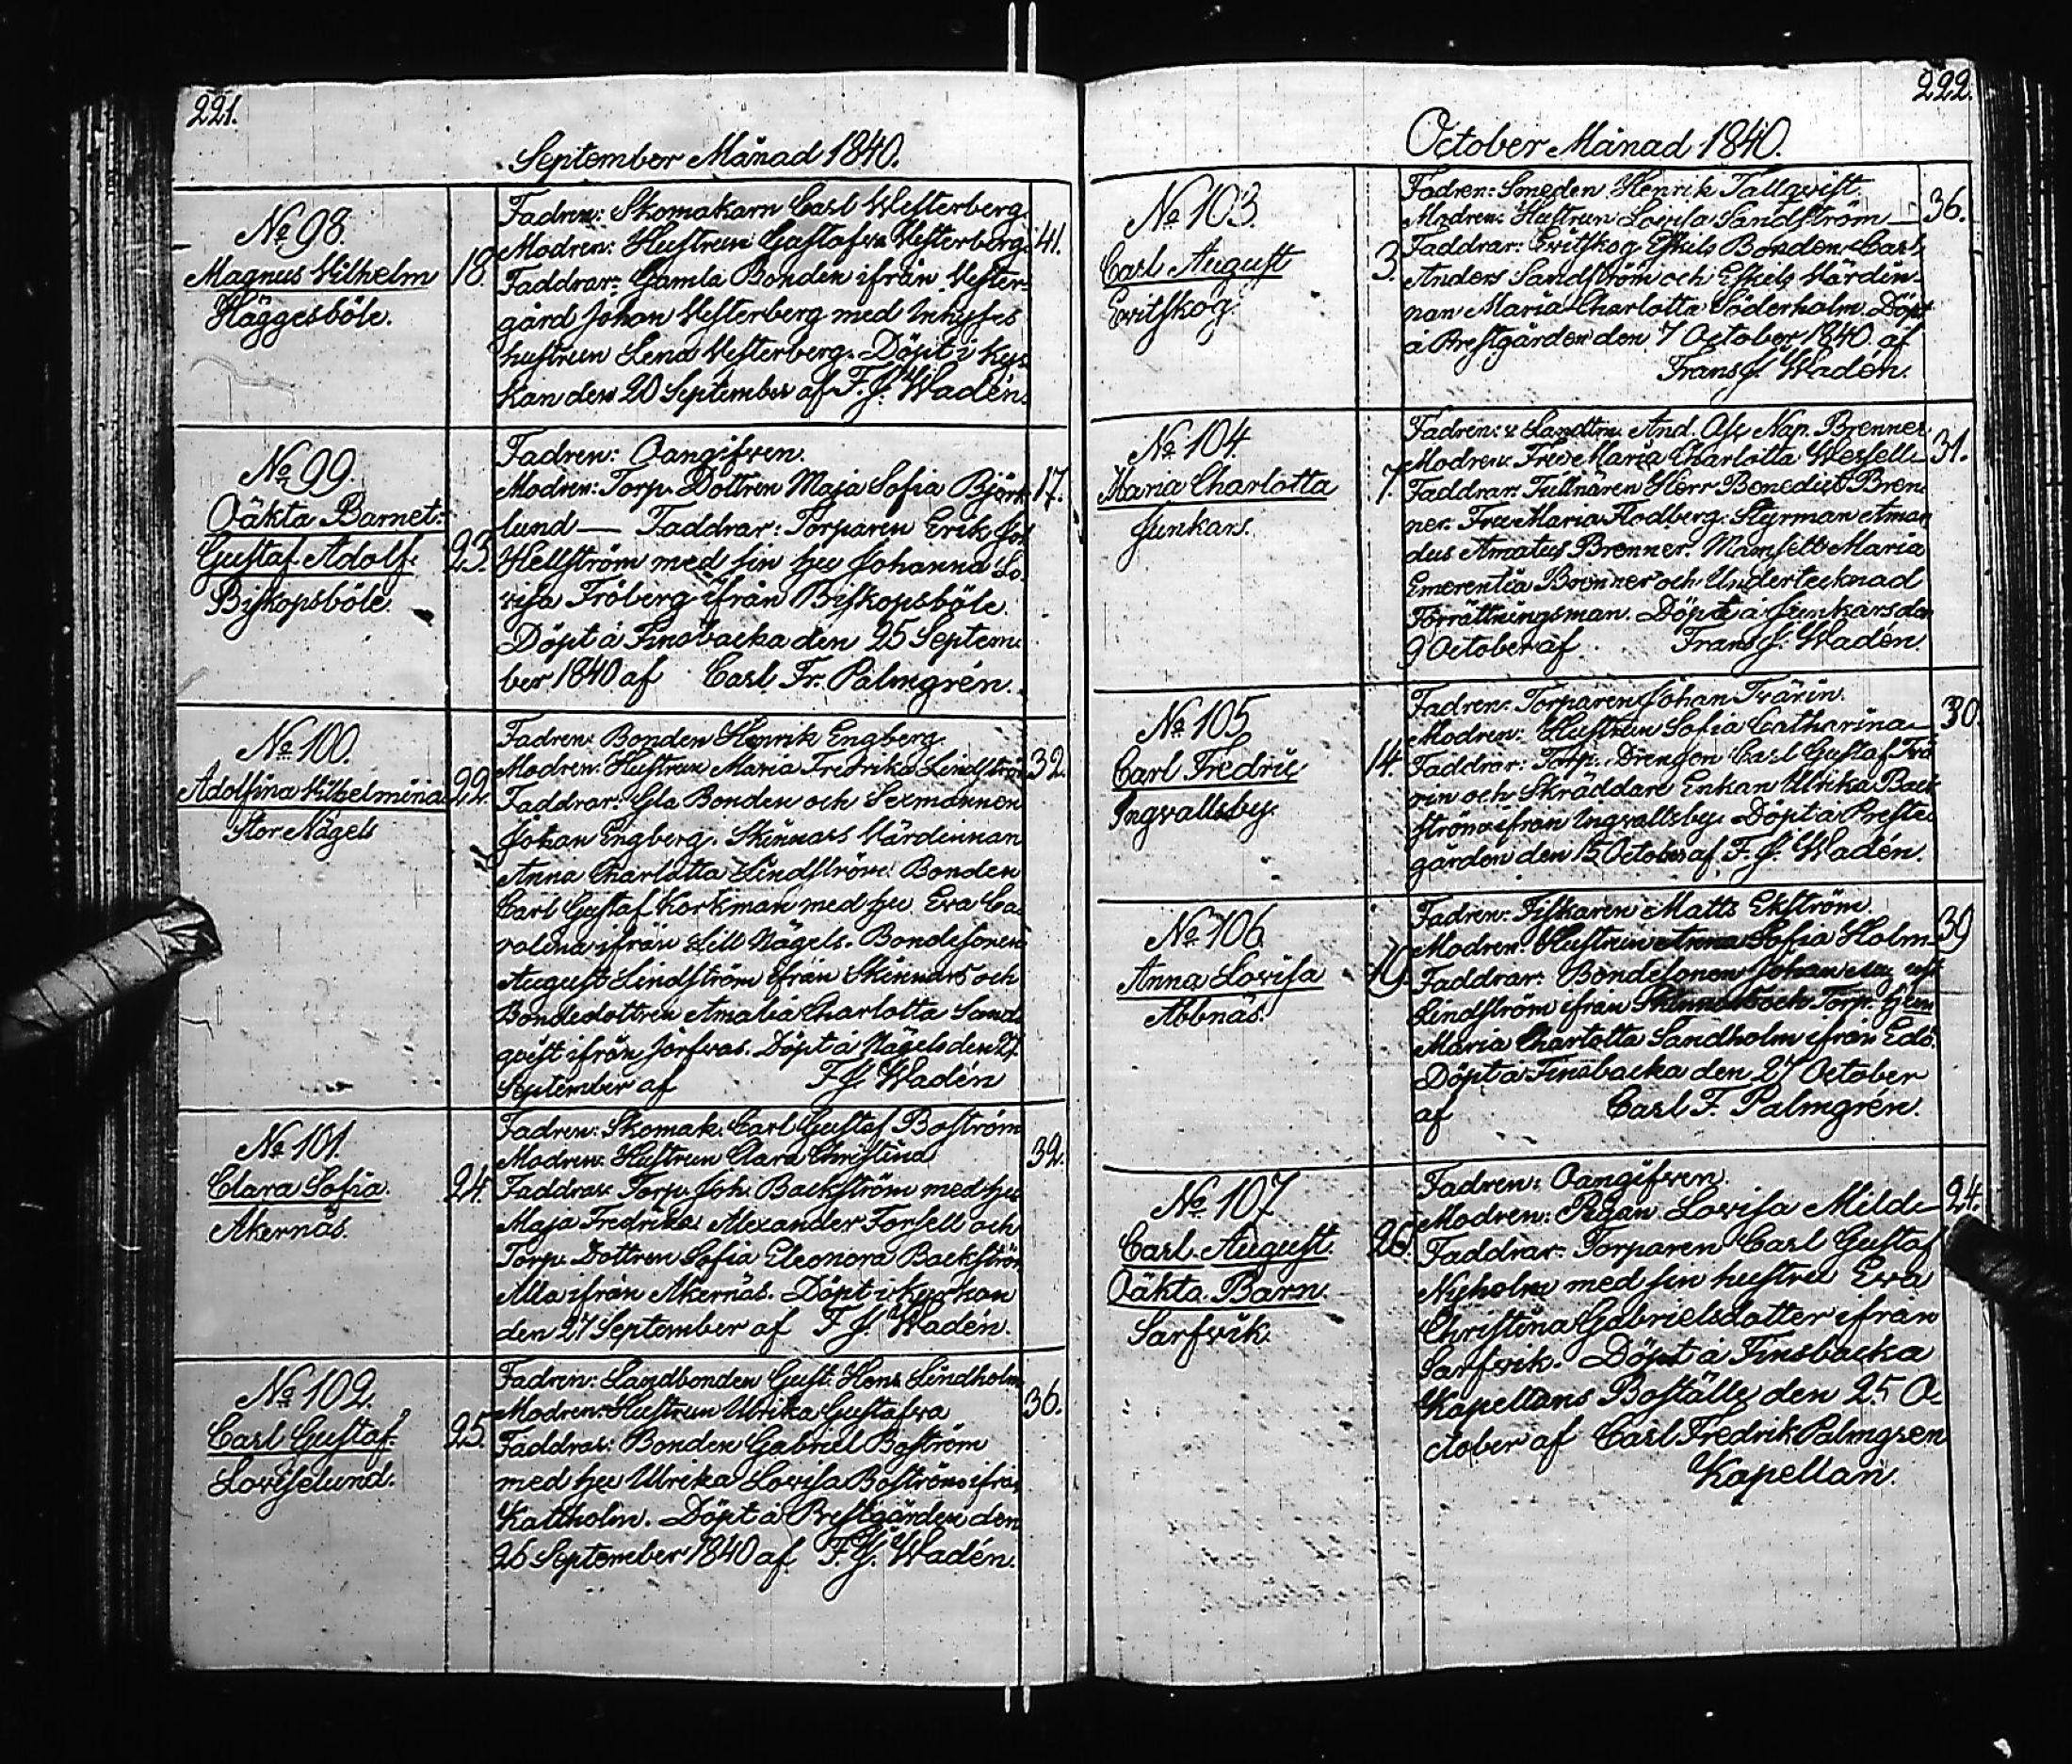 221.
September Månad 1840.
No 98.
Magnus Wilhelm
Häggesböle.
18.
Fadren: Skomakarn Carl Westerberg.
Modren: Hustrun Gustafva Westerberg.
41.
Faddrar: Gamla Bonden ifrån Vester-
gård Johan Westerberg med Inhyses
hustrun Lena Westerberg. Döpt i Kyr-
kan den 20 September af F. J. Wadén.
No 99.
Oäkta Barnet:
Gustaf Adolf.
Biskopsböle.
23.
Fadren: Oangifven.
Modren: Torp. Dottren Maja Sofia Björk-
17.
lund — Faddrar: Torparen Erik Joh
Hellström med sin hu Johanna Lo-
visa Fröberg ifrån Biskopsböle.
Döpt å Finsbacka den 25 Septem-
ber 1840 af Carl Fr. Palmgrén.
No 100.
Adolfina Wilhelmina
Stor Nägels
22.
Fadren: Bonden Henrik Engberg.
Modren: Hustrun Maria Fredrika Lindström
32.
Faddrar: Gla Bonden och Sexmannen
Johan Engberg. Skinnars Värdinnan
Anna Charlotta Lindström. Bonden
Carl Gustaf Korkman med hu Eva Ca-
rolina ifrån Lill Nägels. Bondesonen
August Lindström ifrån Skinnars och
Bondedottren Amalia Charlotta Sand-
qvist ifrån Jorfvas. Döpt å Nägels den 27
September af F J. Wadén
No 101.
Clara Sofia.
Åkernäs.
24.
Fadren: Skomak: Carl Gustaf Boström
Modren: Hustrun Clara Christina
32.
Faddrar: Torp. Joh. Backström med hu
Maja Fredrika. Alexander Forsell och
Torp. Dottren Sofia Eleonora Backström
Alla ifrån Åkernäs. Döpt i Kyrkan
den 27 September af F J. Wadén.
No 102.
Carl Gustaf.
Loviselund.
25.
Fadren: Landbonden Gust. Henr Lindholm
Modren: Hustrun Ulrika Gustafva
36.
Faddrar: Bonden Gabriel Boström
med hu Ulrika Lovisa Boström ifrån
Kattholm. Döpt å Prestgården den
26 September 1840 af F. J. Wadén.
222.
October Månad 1840.
No 103.
Carl August
Evitskog.
3.
Fadren: Smeden Henrik Tallqvist.
Modren: Hustrun Lovisa Sandström —
36.
Faddrar: Evitskog Eskils Bonden Carl
Anders Sandström och Eskils Värdin-
nan Maria Charlotta Söderholm. Döpt
å Prestgården den 7 October 1840 af
Frans J. Wadén.
No 104.
Maria Charlotta
Junkars.
7.
Fadren: v Landtm. And. Nap. Brenner
Modren: Fru Maria Charlotta Wessell —
31.
Faddrar: Tullnären Herr Benedict Bren-
ner. Fru Maria Flodberg. Styrman Aman
dus Amatus Brenner. Mamsell Maria
Emerentia Brenner och Undertecknad
Förrättningsman. Döpt å Junkars den
9 October af Frans J. Wadén.
No 105.
Carl Fredric
Ingvallsby.
14.
Fadren: Torparen Johan Trärin.
Modren: Hustrun Sofia Catharina —
30.
Faddrar: Torp. Drengen Carl Gustaf Trä
rin och Skräddare Enkan Ulrika Back
ström ifrån Ingvallsby. Döpt å Prest-
gården den 15 October af F. J. Wadén.
No 106.
Anna Lovisa
Abbnäs.
19.
Fadren: Fiskaren Matts Ekström.
Modren: Hustrun Anna Sofia Holm.
39
Faddrar: Bondesonen Johan August
Lindström ifrån Skinnars och Torp. Hem
Maria Charlotta Sandholm ifrån Edö.
Döpt å Finsbacka den 27 October
af Carl F. Palmgrén.
No 107
Carl August.
Oäkta Barn.
Sarfvik.
26.
Fadren: Oangifven.
Modren: Pigan Lovisa Mild —
24.
Faddrar: Torparen Carl Gustaf
Nyholm med sin hustru Eva
Christina Gabrielsdotter ifrån
Sarfvik. Döpt å Finsbacka
Kapellans Boställe den 25 O-
ctober af Carl Fredrik Palmgren
Kapellan.